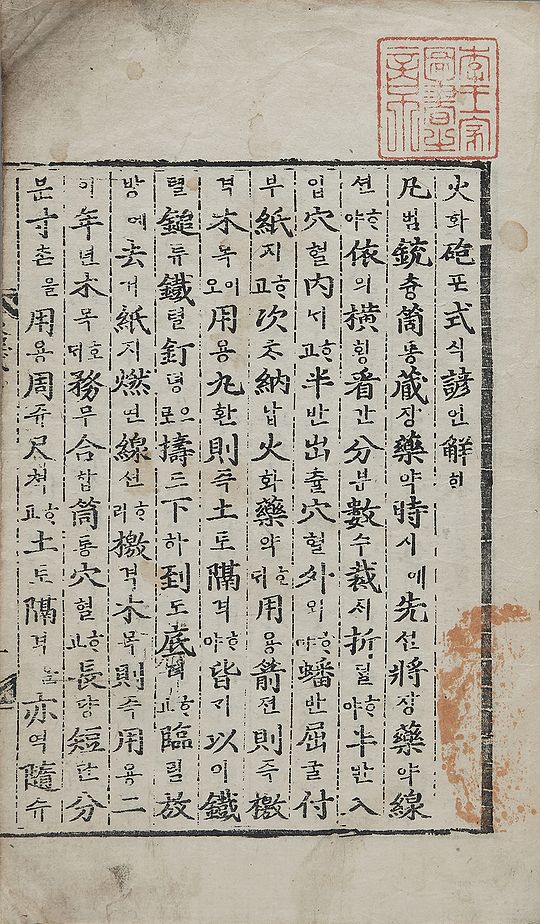 李王家
圖書
之章
火화砲포式식諺언解ᄒᆡ
凡범銃츙筒통藏장藥약時시예先션將쟝藥약線
션ᄒᆞ야依의橫횡看간分분數수裁ᄌᆡ折졀ᄒᆞ야半반入
입穴혈內ᄂᆡᄒᆞ고半반出츌穴혈外외ᄒᆞ야蟠반屈굴付
부紙지ᄒᆞ고次ᄎᆞ納납火화藥약호ᄃᆡ用용箭젼則즉檄
격木목이오用용丸환則즉土토隔격ᄒᆞ야皆ᄀᆡ以이鐵
텰鎚튜鐵텰釘뎡으로擣도下하到도底뎌ᄒᆞ고臨림放
방에去거紙지燃연線션ᄒᆞ라檄격木목則즉用용二
이年년木목호ᄃᆡ務무合합筒통穴혈ᄒᆞ고長댱短단分
분寸촌을用용周쥬尺쳑ᄒᆞ고土토隔격을亦역隨슈